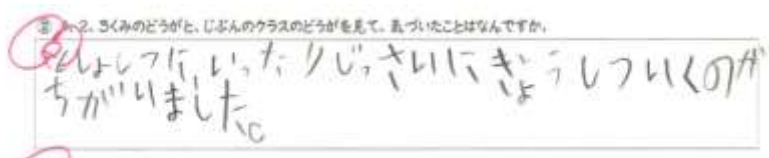 ② A-2、3くみのどうがと、じぶんのクラスのどうがを見て、気づいたことはなんですか。
としょしつに、いったりじっさいにきょうしついくのが
ちがいました。